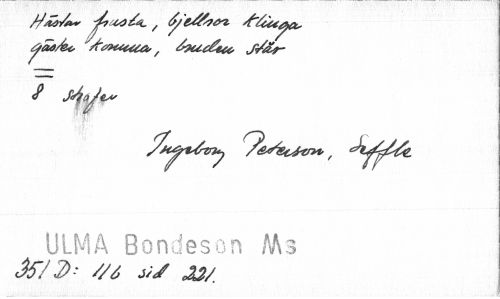 Hästar frusta, bjellror klinga
gäster komma, bruden står
8 strofer
Ingeborg Peterson, Seffle
ULMA Bondeson Ms
351 D: 116 sid 221.